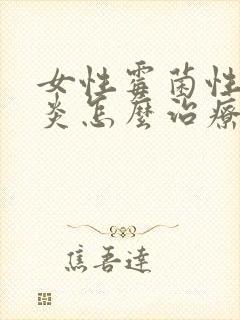 女性霉菌性
炎怎麼治療
焦吾達